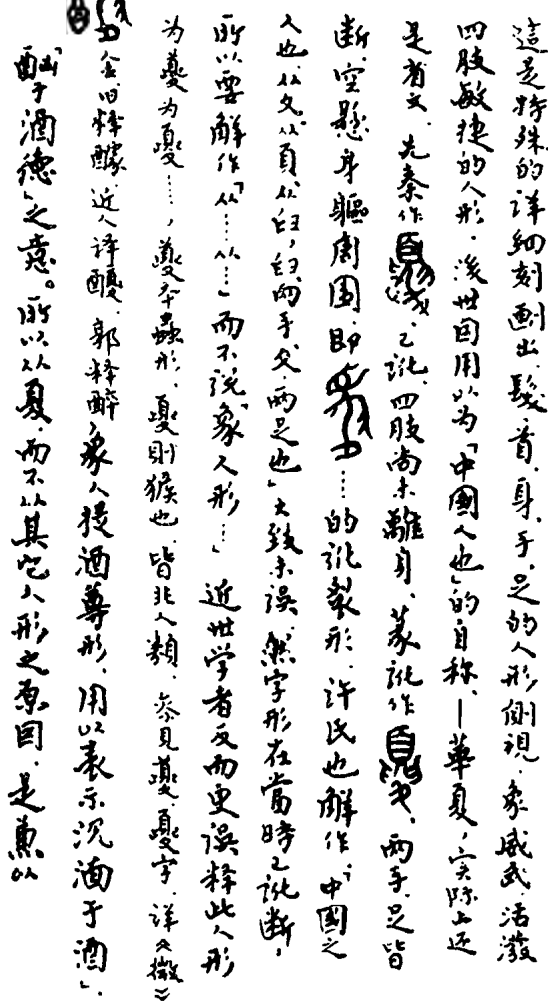 這是特殊的详細刻劃出髮、首、身、手、足的人形側視，象威武、活潑
四肢敏捷的人形，後世因用以为「中國人也」的自称，—華夏，实际上还
是省文，先秦作，已訛，四肢尚未離身，篆訛作，两手、足皆
断，空懸身軀周围，即……的訛裂形，许氏也解作：中國之
人也，从夊、从頁、从𦥑，𦥑，两手、夊，两足也」大致未误，然字形在當時已訛断，
所以要解作「从……从……」而不说「象人形……」近世学者反而更误释此人形
为夔为夒……，夔本蟲形，夒則猴也，皆非人類，参見夔、夒字，详文徵》
金旧释醵，近人译醿，郭释醉，象人提酒尊形，用以表示沉湎于酒」，
「酗于酒德」之意。所以从夏，而不从其它人形之原因，是兼以